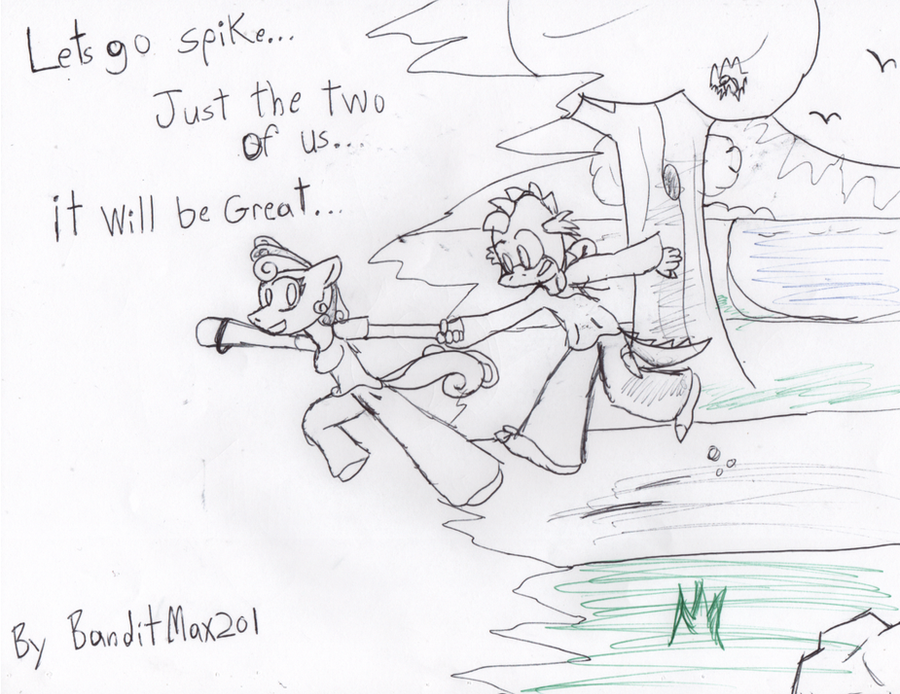 Lets go spike...
Just the two
of us...
it will be Great...
By BanditMax201